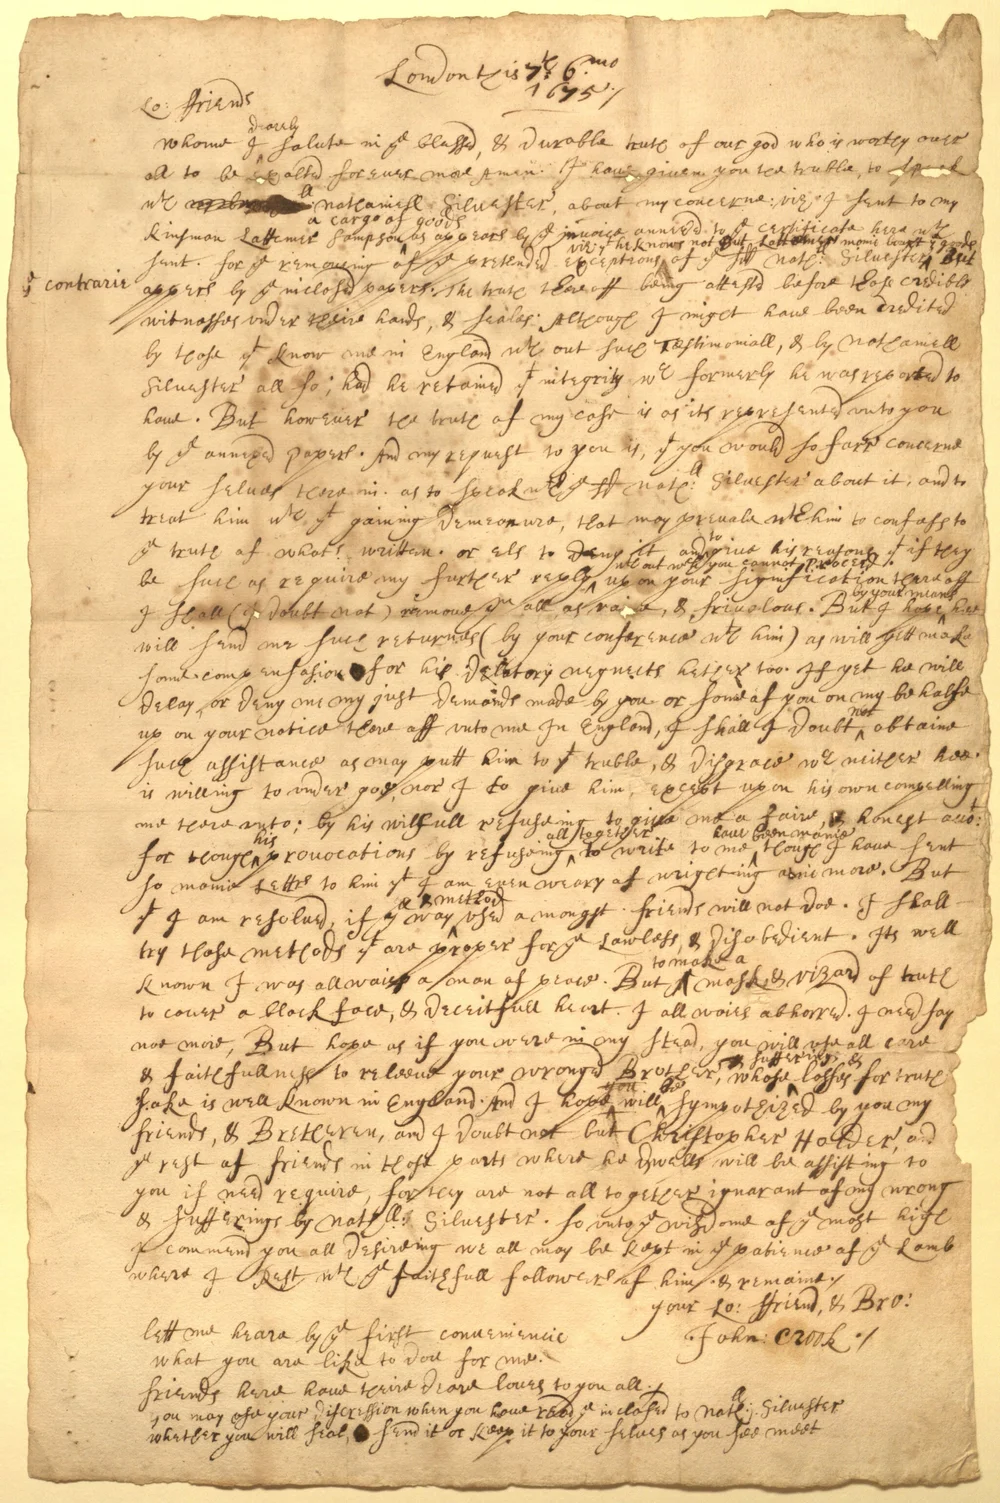 London this 7th 6mo
1675/
Lo: ffriends
dearly
whome I salute in ye blessed, & durable truth of our god who is worthy over
all to be exalted for ever more Amen. I have given you the truble, to speak
wth nathaniell Silvester, about my concerne: viz: I sent to my
a cargo of goods
kinsman Lattemer Sampson as appears by ye invoice annexed to ye certificate here wth
viz: ye he knows not but Lattemer monie bought ye goods
sent. for ye removeing of ye pretended exceptions of ye sd nathll: Silvester, But
ye contrarie appers by ye inclosed papers. The truth thereoff being attested before those credible
wittnesses under theire hands, & seales: Although I might have been credited
by those yt know me in England wth out such Testimoniall, & by nathaniell
Silvester all so; had he retained yt integrity wch formerly he was reported to
have. But however the truth of my case is as its represented unto you
by ye annexed papers. And my request to you is, yt you would so farr concerne
your selves there in. as to speak wth ye sd nathll: Silvester about it; and to
treat him wth yt gaining Demeanure, that may prevale wth him to confess to
ye truth of whats written. or els to Deny it, and to give his reasons yt if they
wth out wch you cannot proceed.
be such as require my further reply, up on your signification there off
by your means
I shall (I doubt not) remove ym all as vaine, & frivolous. But I hope hee
will send me such returnes (by your conference wth him) as will yett make
some compensasion for his Delatory neglects hether too. If yet he will
Delay, or deny me my just Demands made by you or some of you on my behalfe
up on your notice there off unto me In England, I shall I doubt not obtaine
such assistance as may putt him to yt truble, & disgrace wch neither hee
is willing to under goe, nor I to give him, except upon his own compelling
me there unto; by his willfull refuseing to give me a faire, & honest acct:
his all together have been manie
for though provocations by refuseing to write to me though I have sent
so manie Letters to him yt I am even weary of wrighting anie more. But
& method
yt I am resolved, if ye way used amongst friends will not doe. I shall
try those methods yt are proper for ye Lawless, & disobedient. Its well
to make a
known I was allwaies a man of peace. But mask, & vizard of truth
to cover a black face, & deceitfull heart. I all waies abhorred. I need say
noe more, But hope as if you were in my stead, you will use all care
& sufferings, &
& faithfullness to releeve your wronged Brother, whose losses for truth
you be
sake is well known in England. And I hope will sympothized by you my
friends, & Bretheren, and I doubt not but Christopher Holder, and
ye rest of friends in those parts where he dwells will be assisting to
you if need require, for they are not all together ignorant of my wrong
& sufferings by nathll: Silvester. so unto ye wisdome of ye most high
I commend you all desireing we all may be kept in ye patience of ye Lamb
where I Rest wth ye faithfull followers of him. & remaine/
your Lo: ffriend, & Bro:
John: Crook ./
lett me heare by ye first conveniencie
what you are like to doe for me.
friends here have theire deare loves to you all ./
you may use your discression when you have read ye inclosed to nathll: Silvester
whether you will seal, send it or keep it to your selves as you see meet